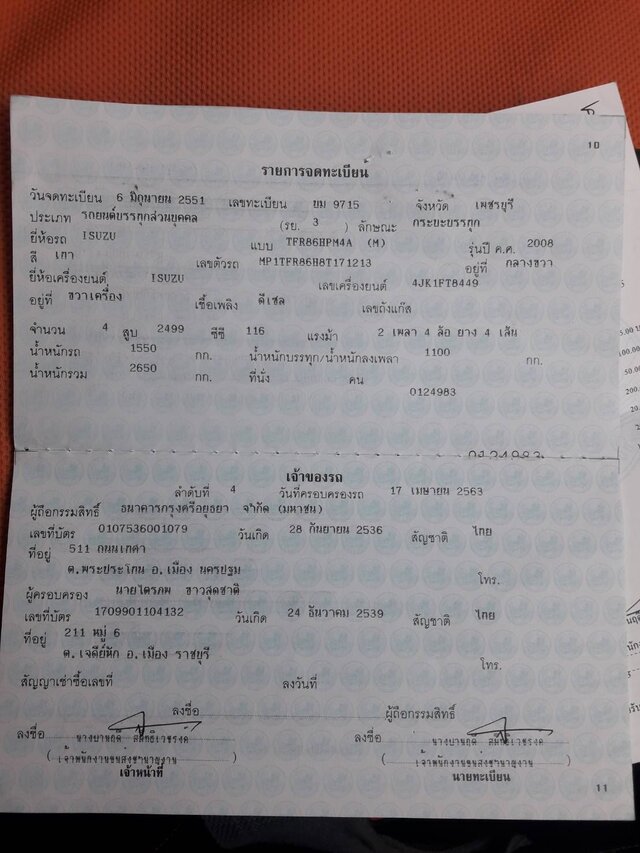 10
รายการจดทะเบียน
วันจดทะเบียน 6 มิถุนายน 2551 เลขทะเบียน ยม 9715 จังหวัด เพชรบุรี
ประเภท รถยนต์บรรทุกส่วนบุคคล (รย. 3 ) ลักษณะ กระบะบรรทุก
ยี่ห้อรถ ISUZU แบบ TFR86HPM4A (M) รุ่นปี ค.ศ. 2008
สี เทา เลขตัวรถ MP1TFR86H8T171213 อยู่ที่ กลางขวา
ยี่ห้อเครื่องยนต์ ISUZU เลขเครื่องยนต์ 4JK1FT8449
อยู่ที่ ขวาเครื่อง เชื้อเพลิง ดีเซล เลขถังแก๊ส
จำนวน 4 สูบ 2499 ซีซี 116 แรงม้า 2 เพลา 4 ล้อ ยาง 4 เส้น
น้ำหนักรถ 1550 กก. น้ำหนักบรรทุก/น้ำหนักลงเพลา 1100 กก.
น้ำหนักรวม 2650 กก. ที่นั่ง คน
0124983
0124983
เจ้าของรถ
ลำดับที่ 4 วันที่ครอบครองรถ 17 เมษายน 2563
ผู้ถือกรรมสิทธิ์ ธนาคารกรุงศรีอยุธยา จำกัด (มหาชน)
เลขที่บัตร 0107536001079 วันเกิด 28 กันยายน 2536 สัญชาติ ไทย
ที่อยู่ 511 ถนนเทศา
ต.พระประโทน อ.เมือง นครปฐม โทร.
ผู้ครอบครอง นายไตรภพ ขาวสุดชาติ
เลขที่บัตร 1709901104132 วันเกิด 24 ธันวาคม 2539 สัญชาติ ไทย
ที่อยู่ 211 หมู่ 6
ต.เจดีย์หัก อ.เมือง ราชบุรี โทร.
สัญญาเช่าซื้อเลขที่ ลงวันที่
ลงชื่อ ผู้ถือกรรมสิทธิ์
ลงชื่อ ลงชื่อ
(เจ้าพนักงานขนส่งชำนาญงาน) (เจ้าพนักงานขนส่งชำนาญงาน)
เจ้าหน้าที่ นายทะเบียน
11